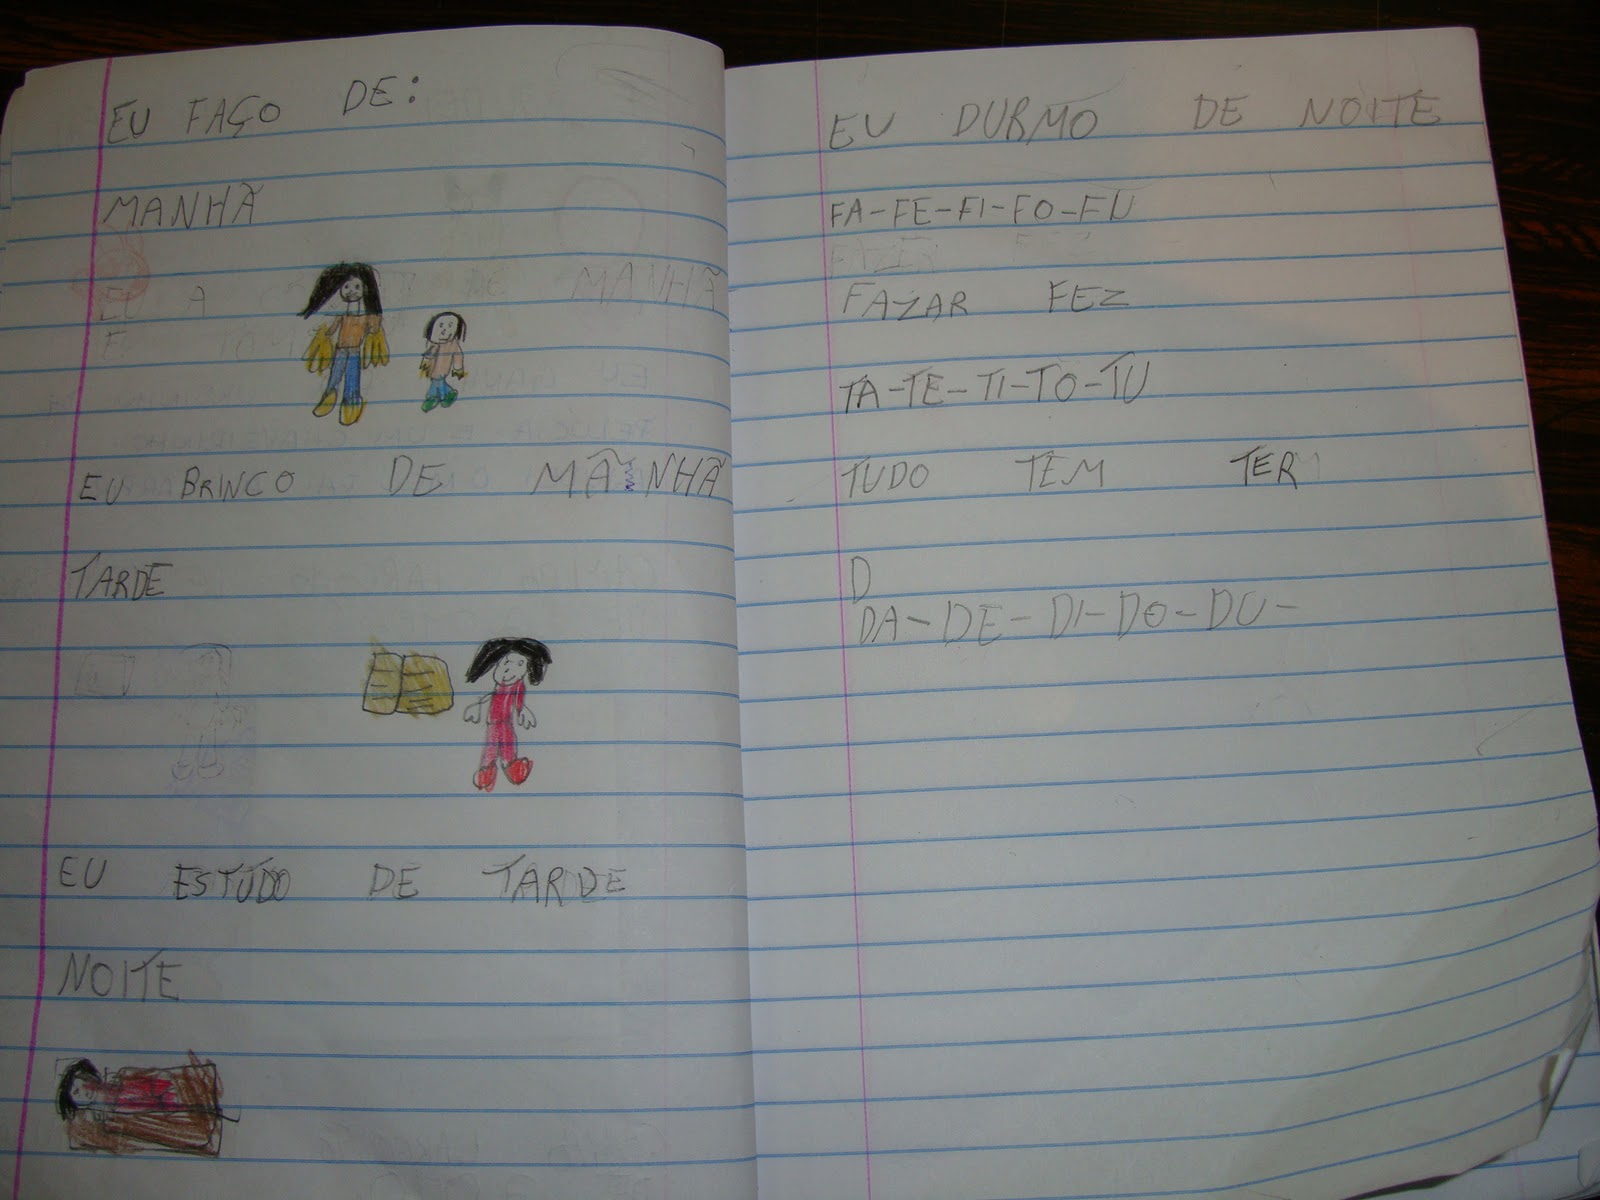 EU FAÇO DE:
MANHÃ
EU BRINCO DE MÃNHÃ
TARDE
EU ESTUDO DE TARDE
NOITE
EU DURMO DE NOITE
FA-FE-FI-FO-FU
FAZER FEZ
FAZAR FEZ
TA-TE-TI-TO-TU
TUDO TEM TER
D
DA-DE-DI-DO-DU-